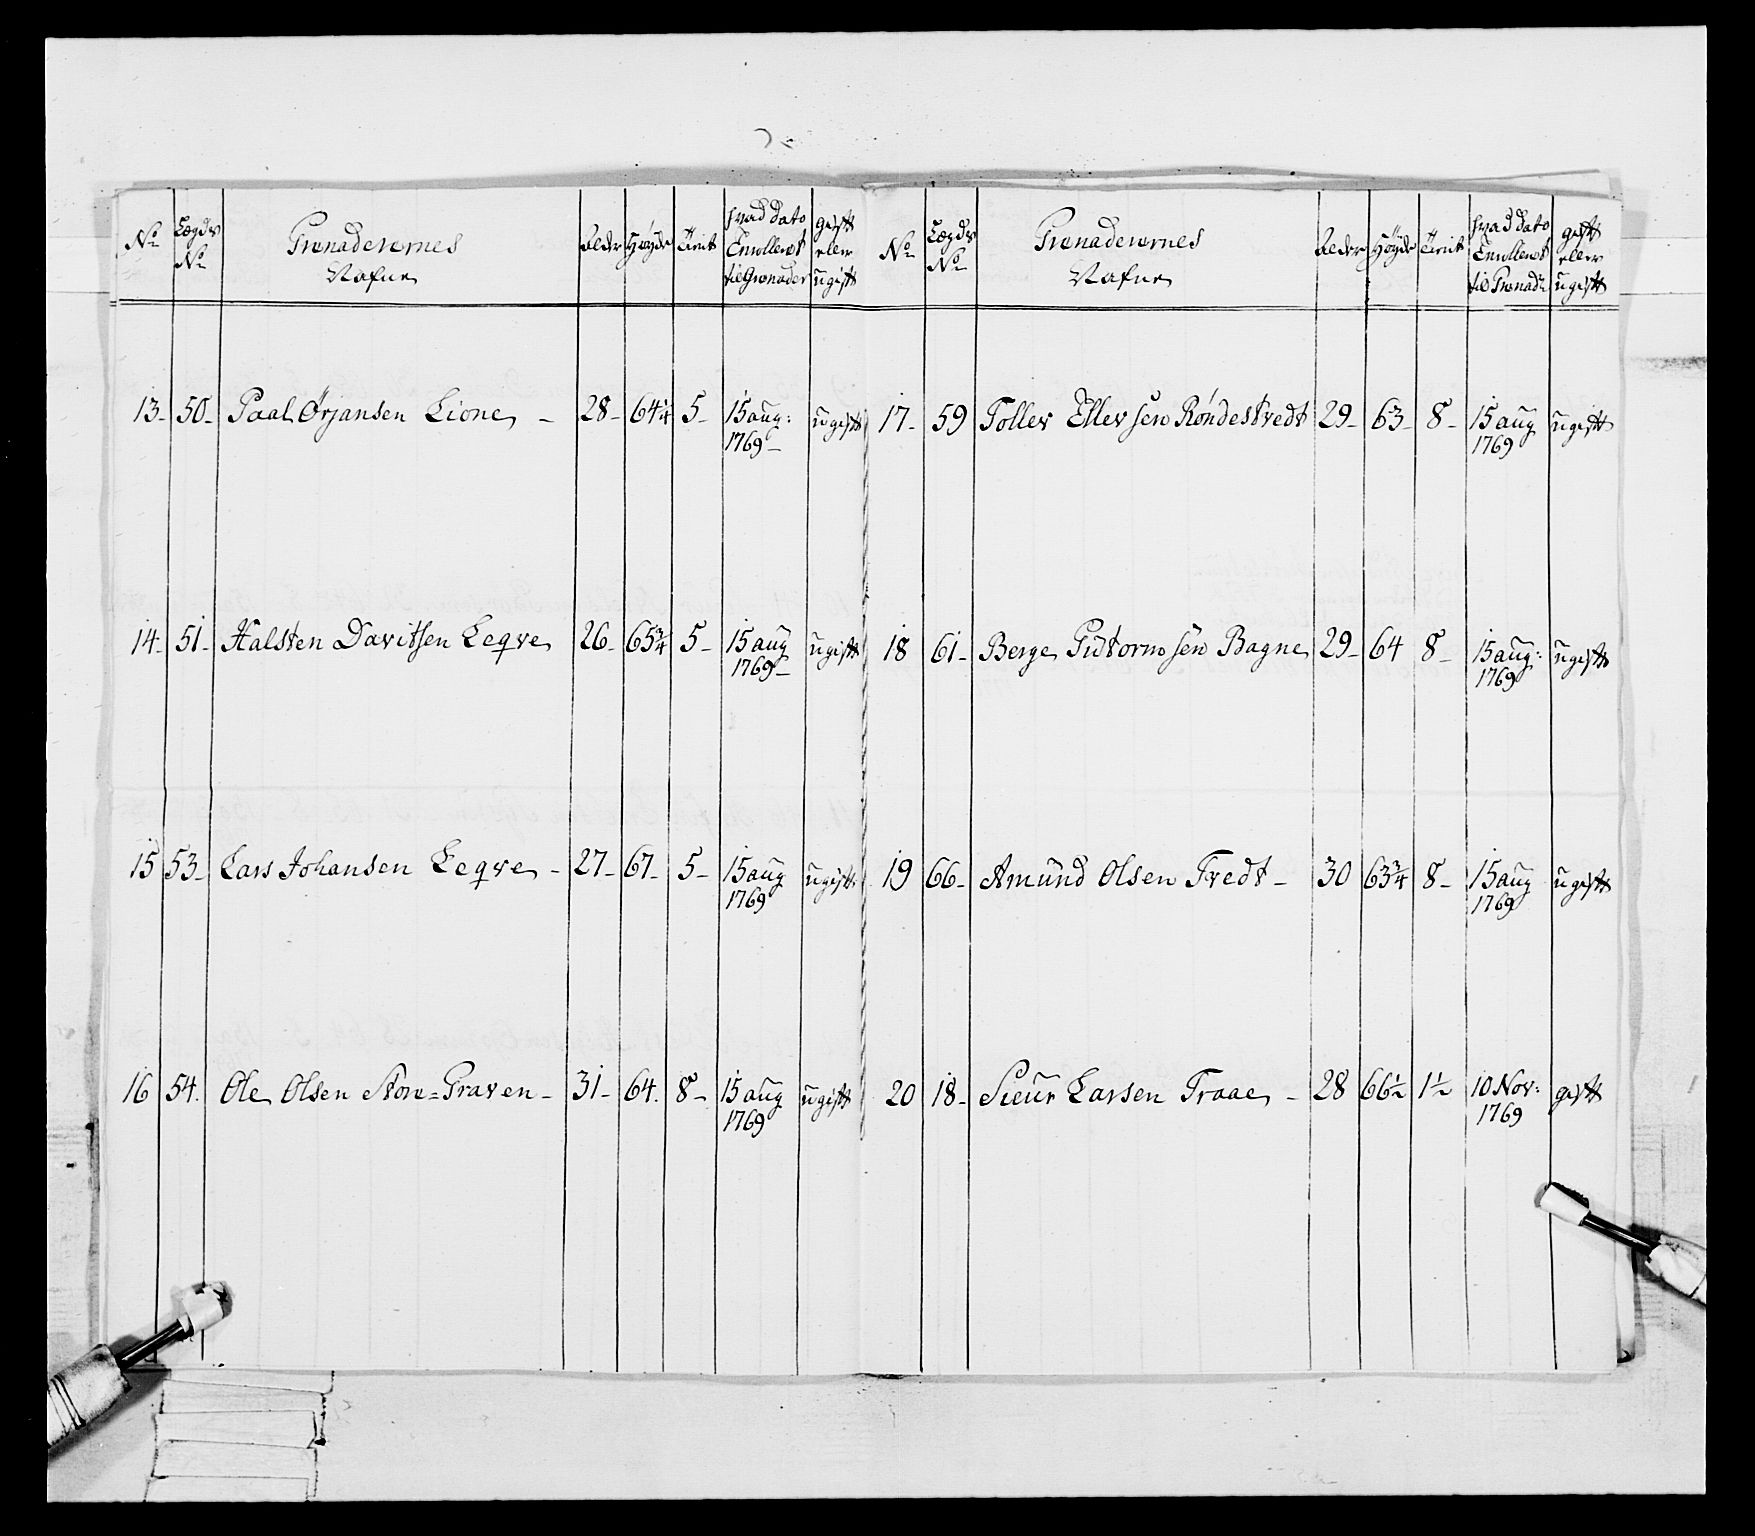 No | Lægds No | Grenaderernes Nafne | Alder | Høyde | Tient | Hvad dato Enrollert til Grenader | gift eller ugift
13 - | 50 - | Paal Ørjansen Lione - | 28 - | 64 1/4 | 5 - | 15 aug: 1769 - | ugift
14 - | 51 - | Halsten Davitsen Leqve | 26 - | 65 3/4 | 5 - | 15 aug 1769 - | ugift
15 | 53 - | Lars Johansen Leqve - | 27 - | 67 - | 5 - | 15 aug 1769 | ugift
16 | 54. | Ole Olsen Store = Graven - | 31 - | 64. | 8 - | 15 aug 1769 | ugift
No | Lægds No | Grenaderernes Nafne | Alder | Høyde | Tient | Hvad dato Enrollert til Grenad: | gift eller ugift
17 - | 59 | Tollev Ellevsen Røndestvedt | 29 - | 63 - | 8 - | 15 aug 1769 | ugift
18 | 61 - | Berge Gutormsen Bagne | 29 - | 64 | 8 - | 15 aug: 1769 | ugift
19 | 66 - | Amund Olsen Tvedt - | 30 | 63 3/4 | 8 - | 15 aug 1769 | ugift
20 | 18 - | Siur Larsen Traae - | 28 | 66 1/2 | 1 1/2 | 10 Nov: 1769 | gift